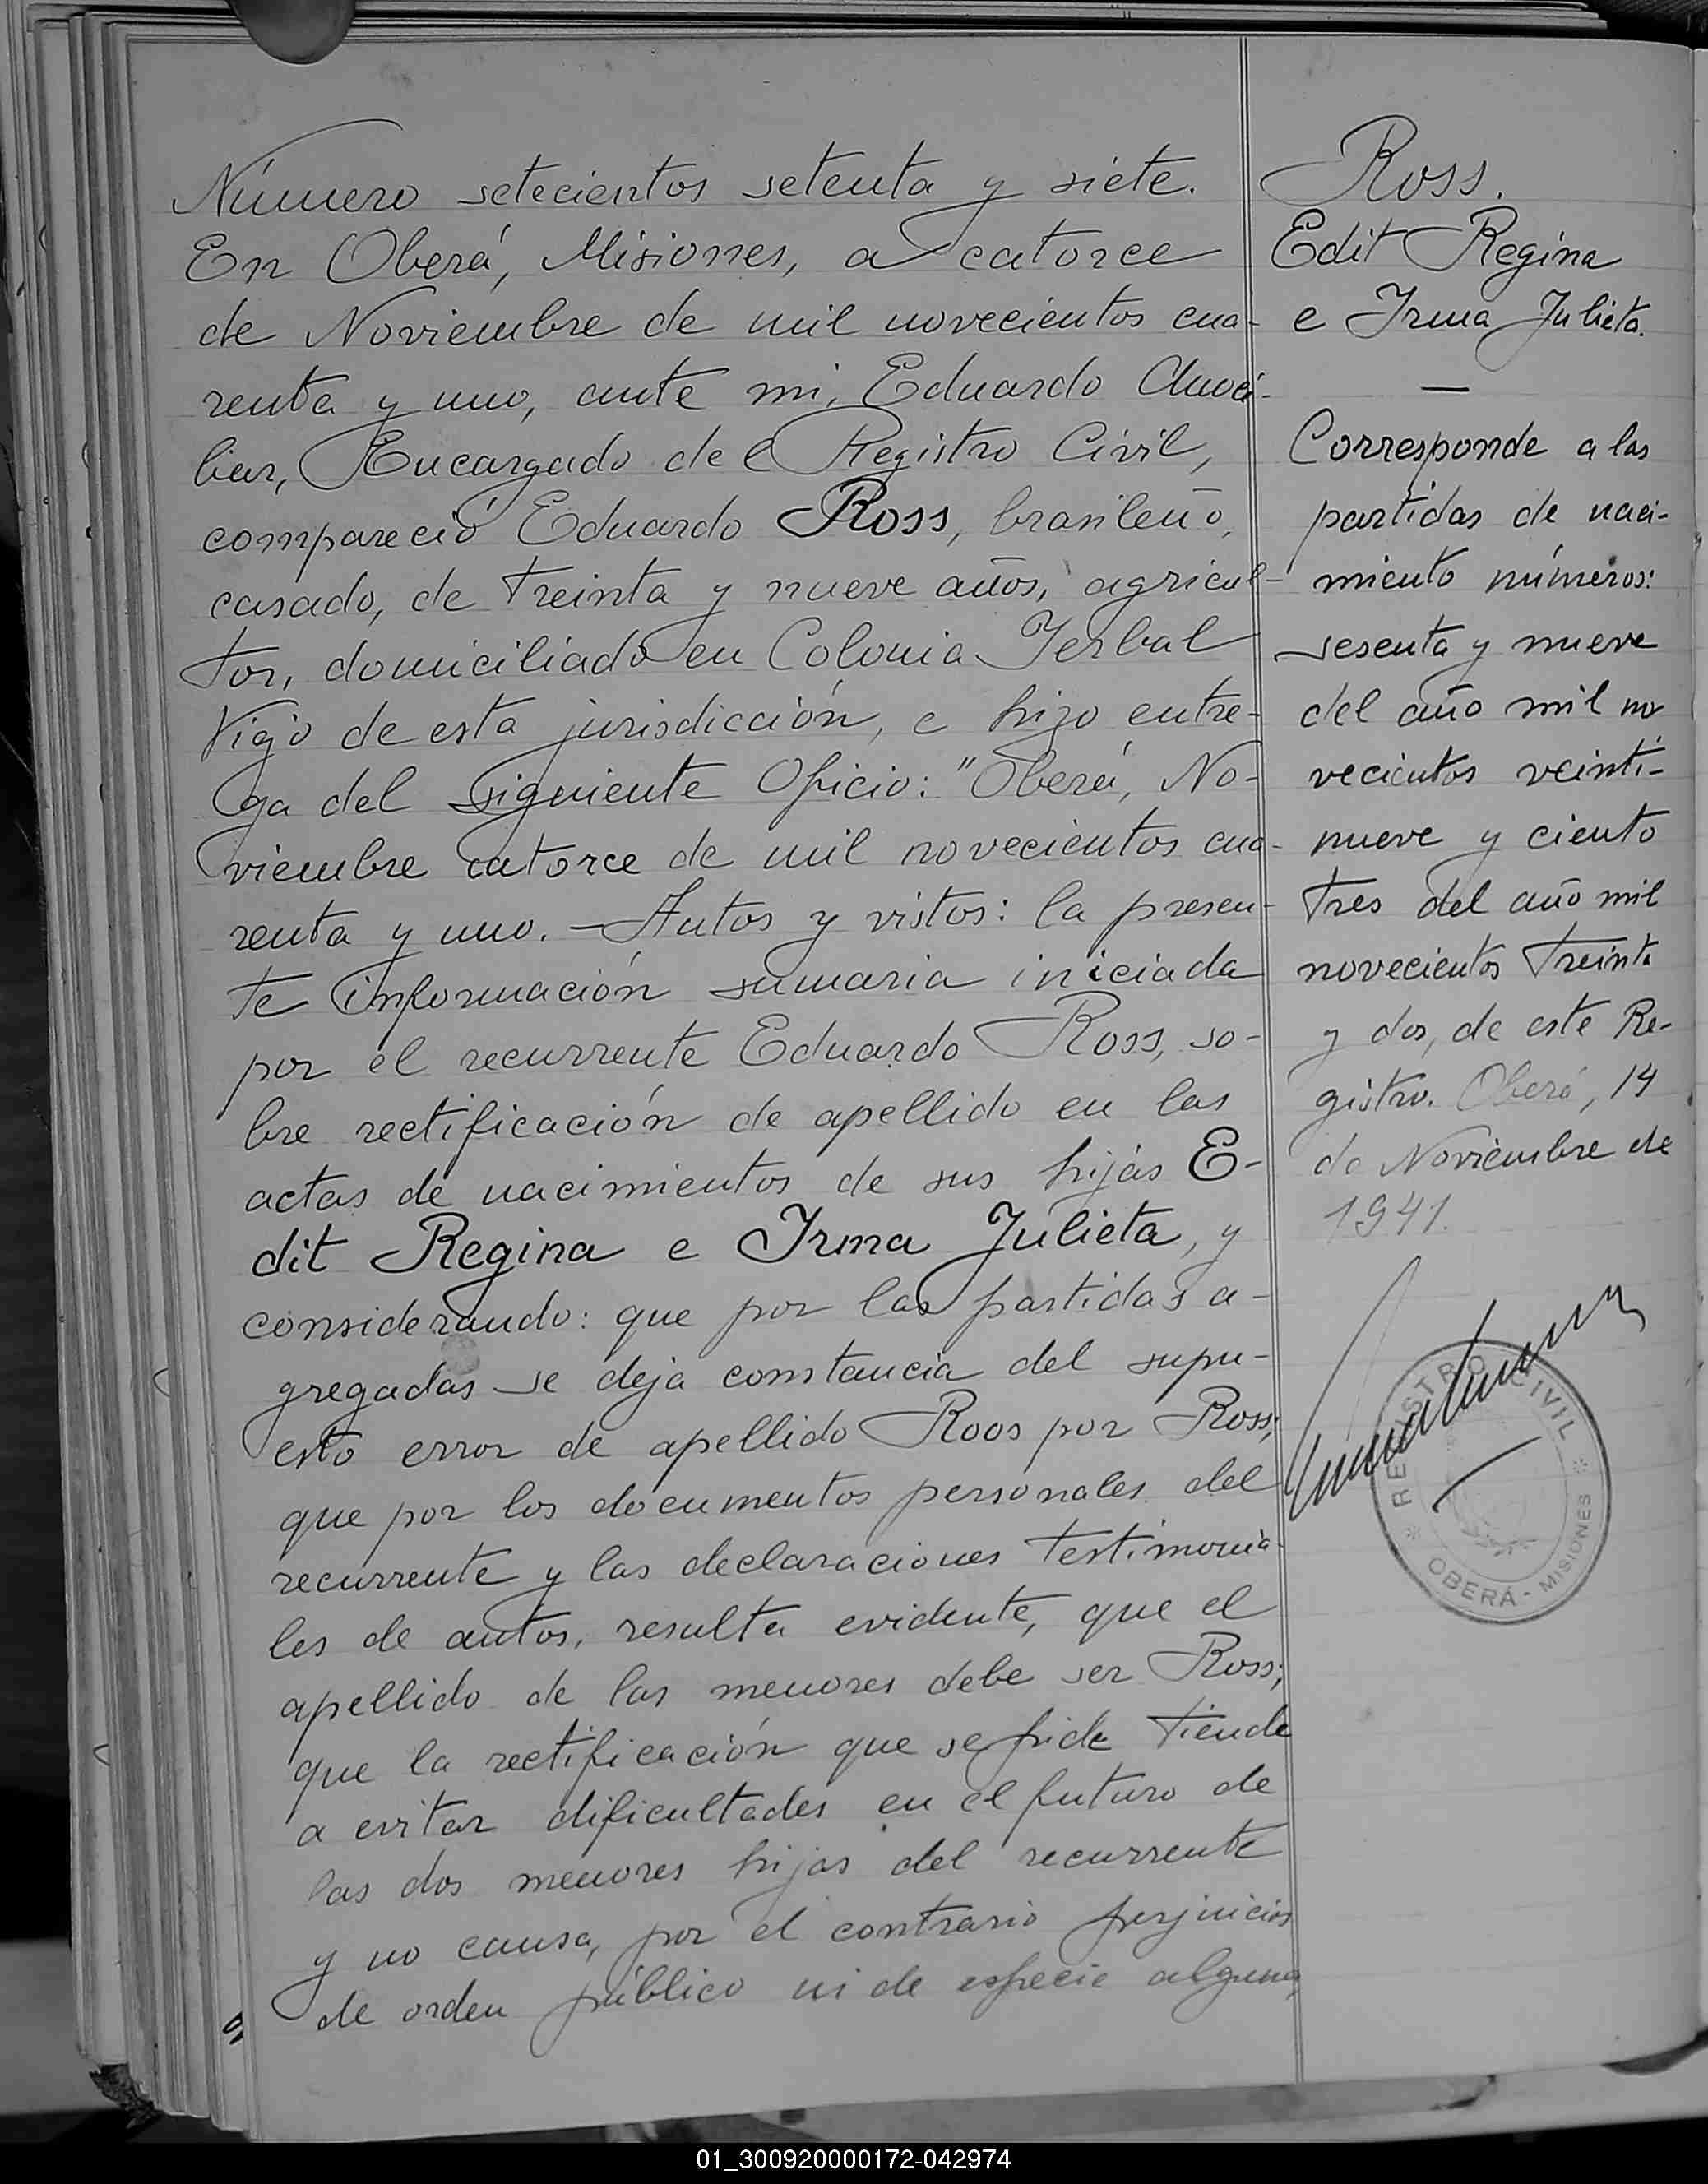 Número setecientos setenta y siete.
En Oberá, Misiones, a catorce
de Noviembre de mil novecientos cua-
renta y uno, ante mi, Eduardo
Encargado del Registro Civil,
compareció Eduardo Ross, brasileño,
casado, de treinta y nueve años, agricul-
tor, domiciliado en Colonia Yerbal
Viejo de esta jurisdicción, e hizo entre-
ga del siguiente Oficio: "Oberá, No-
viembre catorce de mil novecientos cua-
renta y uno. - Autos y vistos: la presen-
te información sumaria iniciada
por el recurrente Eduardo Ross, so-
bre rectificación de apellido en las
actas de nacimientos de sus hijas E-
dit Regina e Irma Julieta, y
considerando: que por las partidas a-
gregadas se deja constancia del supu-
esto error de apellido Roos por Ross;
que por los documentos personales del
recurrente y las declaraciones testimonia-
les de autos, resulta evidente, que el
apellido de las menores debe ser Ross;
que la rectificación que se pide tiende
a evitar dificultades en el futuro de
las dos menores hijas del recurrente
y no causa, por el contrario perjuicios
de orden público ni de especie alguna,
Ross.
Edit Regina
e Irma Julieta.
—
Corresponde a las
partidas de naci-
miento números:
sesenta y nueve
del año mil no
vecientos veinti-
nueve y ciento
tres del año mil
novecientos treinta
y dos, de este Re-
gistro. Oberá, 14
de Noviembre de
1941.
REGISTRO CIVIL
OBERÁ - MISIONES
01_300920000172-042974